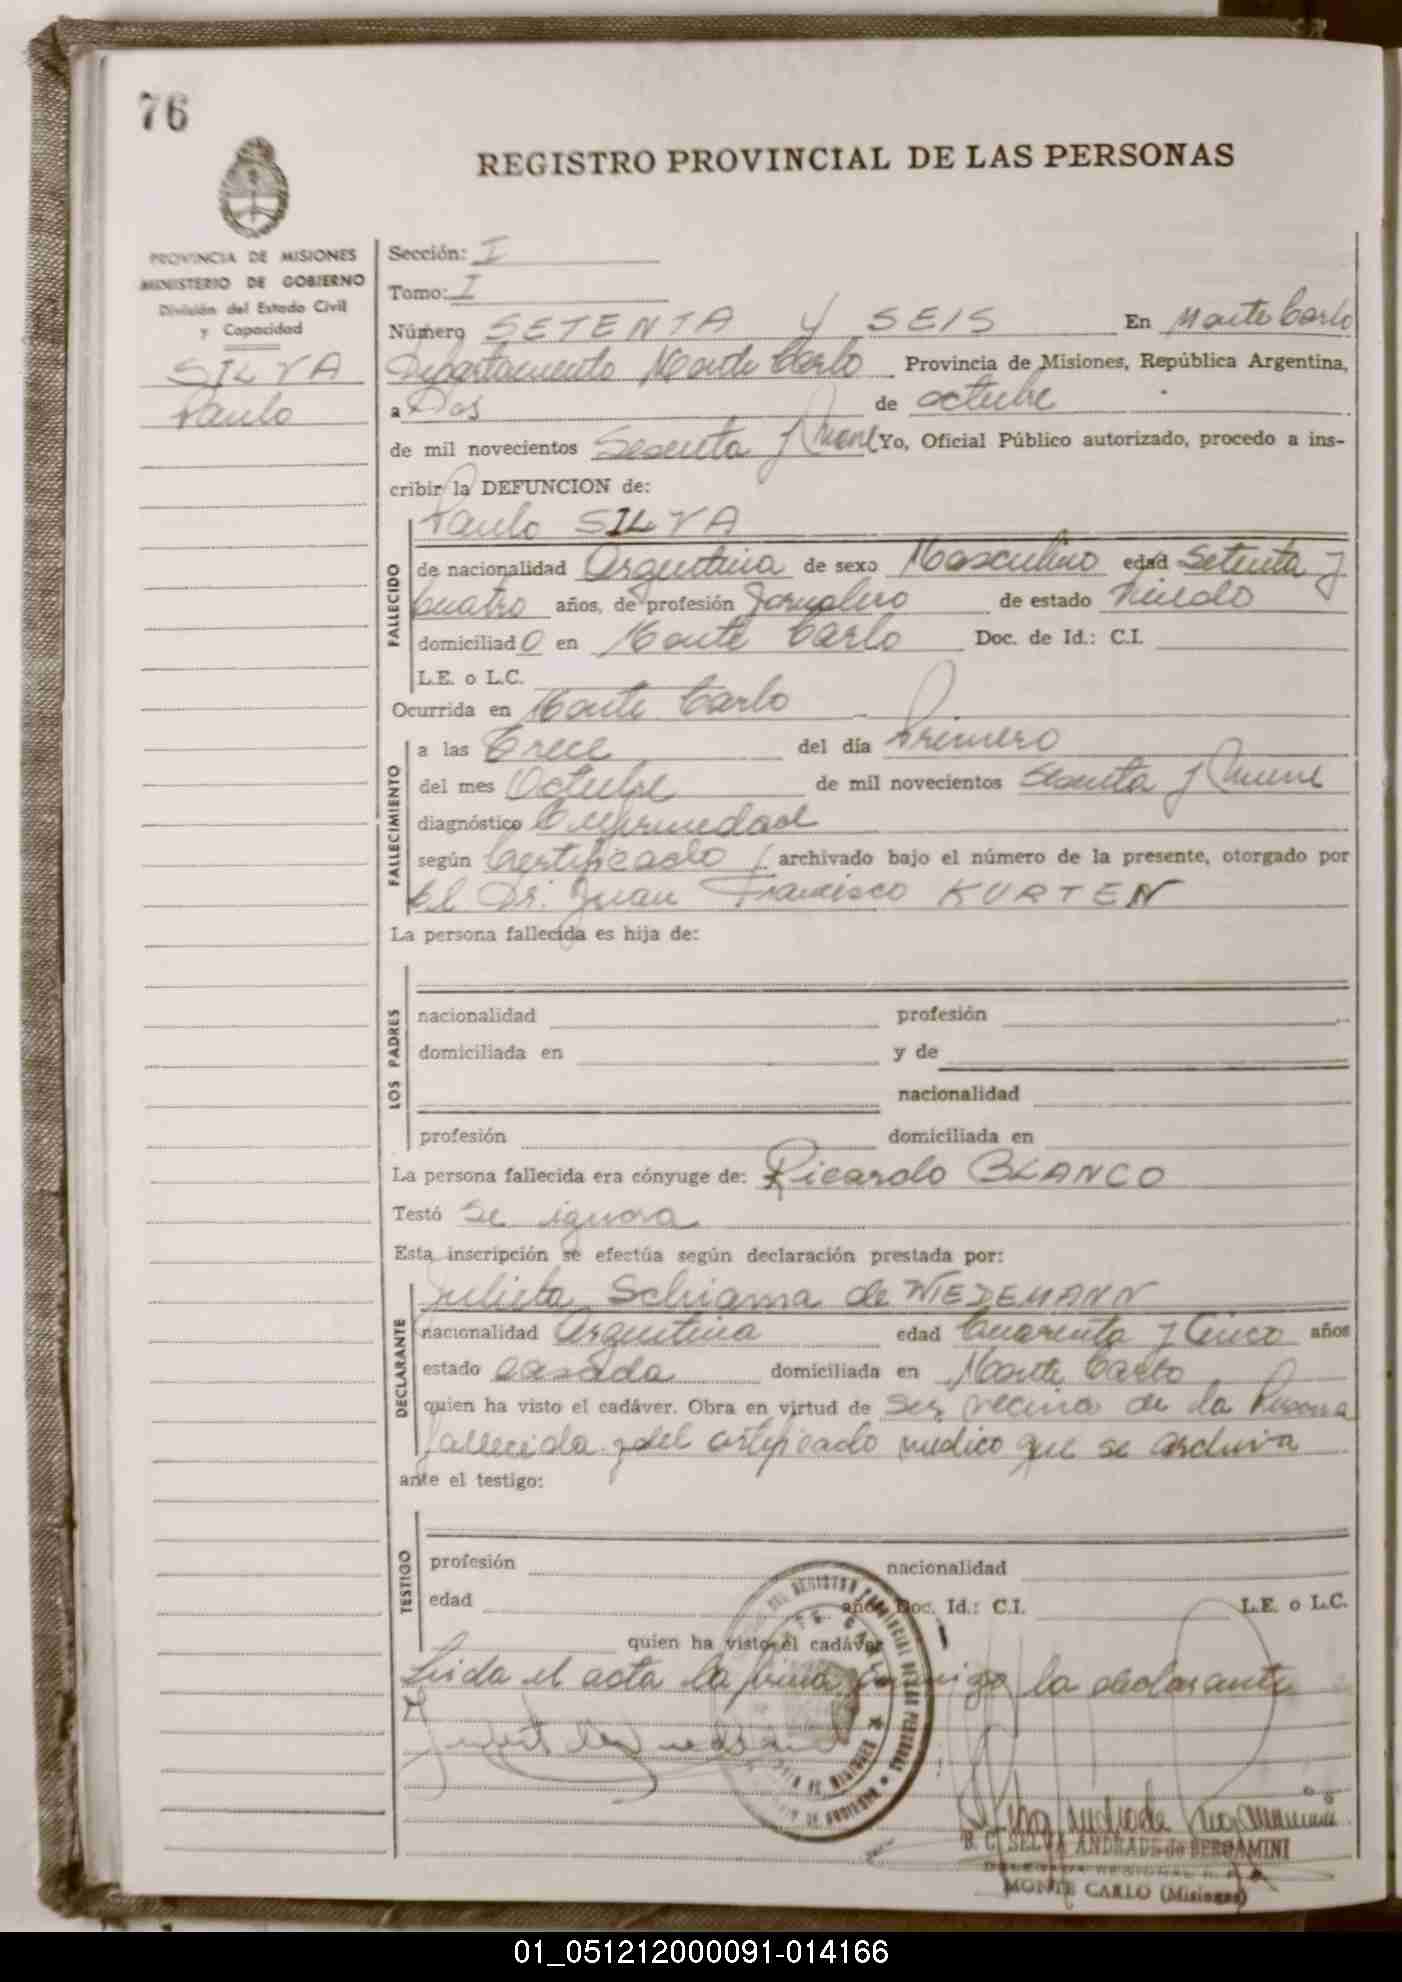 76
REGISTRO PROVINCIAL DE LAS PERSONAS
PROVINCIA DE MISIONES
MINISTERIO DE GOBIERNO
División del Estado Civil
y Capacidad
SILVA
Paulo
Sección: I
Tomo: I
Número SETENTA Y SEIS En Monte Carlo
Departamento Monte Carlo Provincia de Misiones, República Argentina,
a Dos de octubre
de mil novecientos Sesenta y Nueve Yo, Oficial Público autorizado, procedo a ins-
cribir la DEFUNCION de:
Paulo SILVA
FALLECIDO
de nacionalidad Argentina de sexo Masculino edad Setenta y
Cuatro años, de profesión Jornalero de estado Viudo
domiciliado en Monte Carlo Doc. de Id.: C.I.
L.E. o L.C.
Ocurrida en Monte Carlo
FALLECIMIENTO
a las Trece del día Primero
del mes Octubre de mil novecientos Sesenta y Nueve
diagnóstico Enfermedad
según Certificado archivado bajo el número de la presente, otorgado por
el Dr. Juan Francisco KURTEN
La persona fallecida es hija de:
LOS PADRES
nacionalidad profesión
domiciliada en y de
nacionalidad
profesión domiciliada en
La persona fallecida era cónyuge de: Ricardo BLANCO
Testó Se ignora
Esta inscripción se efectúa según declaración prestada por:
DECLARANTE
Julieta de WIEDEMANN
nacionalidad Argentina edad Cuarenta y Cinco años
estado casada domiciliada en Monte Carlo
quien ha visto el cadáver. Obra en virtud de ser vecina de la Persona
fallecida y del certificado medico que se archiva
ante el testigo:
TESTIGO
profesión nacionalidad
edad años Doc. Id.: C.I. L.E. o L.C.
quien ha visto el cadáver
Leida el acta la firma conmigo la declarante
B. C. SELVA ANDRADE de BERGAMINI
DELEGADA REGIONAL
MONTE CARLO (Misiones)
01_051212000091-014166